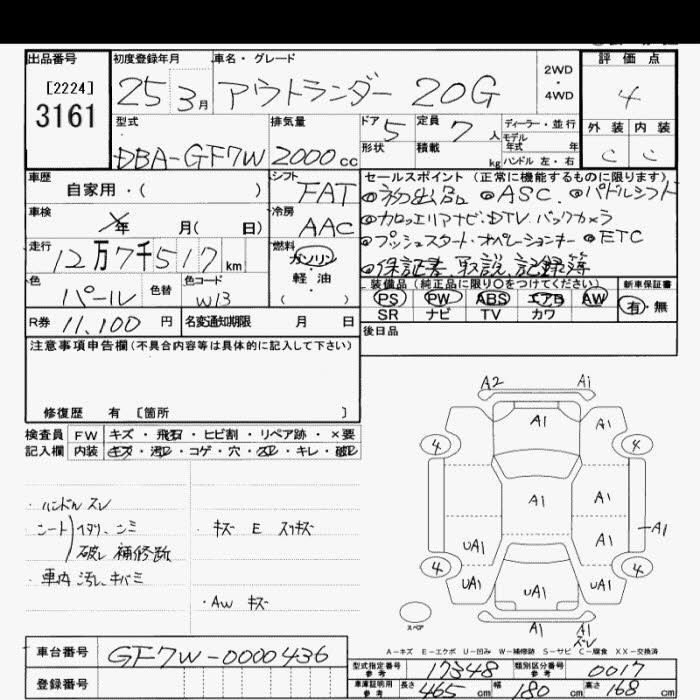 出品番号 初度登録年月 車名・グレード 2WD・4WD 評価点
[2224]
3161 25 3月 アウトランダー 20G 4
型式 排気量 ドア 5 定員 7人 ディーラー・並行 外装 内装
形状 積載 kg モデル年式 年式 ハンドル 左・右
DBA-GF7W 2000cc C C
車歴 自家用・( ) シフト FAT
セールスポイント(正常に機能するものに限ります)
◎初出品 ◎ASC ◎パドルシフト
車検 年 月( 日) 冷房 AAC
◎カロッツェリアナビ・DTV バックカメラ
走行 12万7千517km 燃料 ガソリン
軽・油
( )
◎プッシュスタート・オペレーションキー ◎ETC
◎保証書 取説 記録簿
色 パール 色替 色コード W13
装備品(純正品に限り○をつけてください) 新車保証書
PS PW ABS エアB AW 有・無
SR ナビ TV カワ
R券 11,100円 名変通知期限 月 日
後日品
注意事項申告欄(不具合内容等は具体的に記入して下さい)
修復歴 有 [箇所 ]
検査員 FW キズ・飛石・ヒビ割・リペア跡・×要
記入欄 内装 キズ・汚レ・コゲ・穴・スレ・キレ・破レ
・ハンドル スレ
・シート ヘタリ、シミ
破レ 補修跡
・車内 汚レ キバミ
・キズ E スリキズ
・AW キズ
A2 A1
A1 A1
4 4
A1 A1 A1
UA1 A1
4 4
UA1 UA1 UA1
スペア A1 A1
ズレ
A-キズ E-エクボ U-凹み W-補修跡 S-サビ C-腐食 XX-交換済
車台番号 GF7W-0000436
登録番号
型式指定番号 参考 17348 類別区分番号 参考 0017
車庫証明用 参考 長さ 465cm 幅 180cm 高さ 168cm